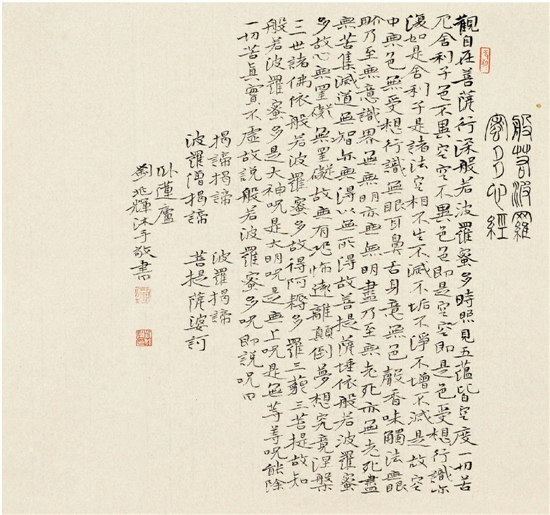 般若波羅
蜜多心經
觀自在菩薩行深般若波羅蜜多時照見五蘊皆空度一切苦
厄舍利子色不異空空不異色色即是空空即是色受想行識亦
復如是舍利子是諸法空相不生不滅不垢不淨不增不減是故空
中無色無受想行識無眼耳鼻舌身意無色聲香味觸法無眼
界乃至無意識界無無明亦無無明盡乃至無老死亦無老死盡
無苦集滅道無智亦無得以無所得故菩提薩埵依般若波羅蜜
多故心無罣礙無罣礙故無有恐怖遠離顛倒夢想究竟涅槃
三世諸佛依般若波羅蜜多故得阿耨多羅三藐三菩提故知
般若波羅蜜多是大神呪是大明呪是無上呪是無等等呪能除
一切苦真實不虛故說般若波羅蜜多呪即說呪曰
揭諦揭諦 波羅揭諦
波羅僧揭諦 菩提薩婆訶
臥蓮廬
劉兆輝沐手敬書